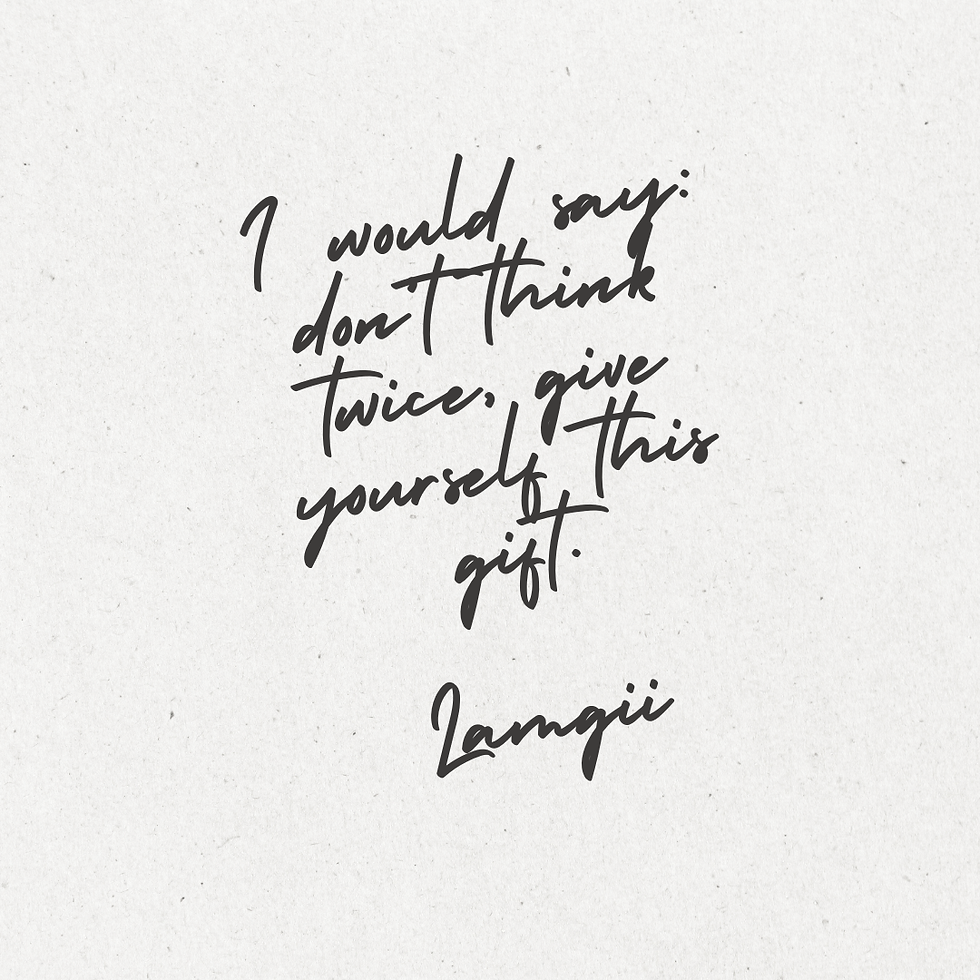 I would say:
don't think
twice, give
yourself this
gift.
Lamgii